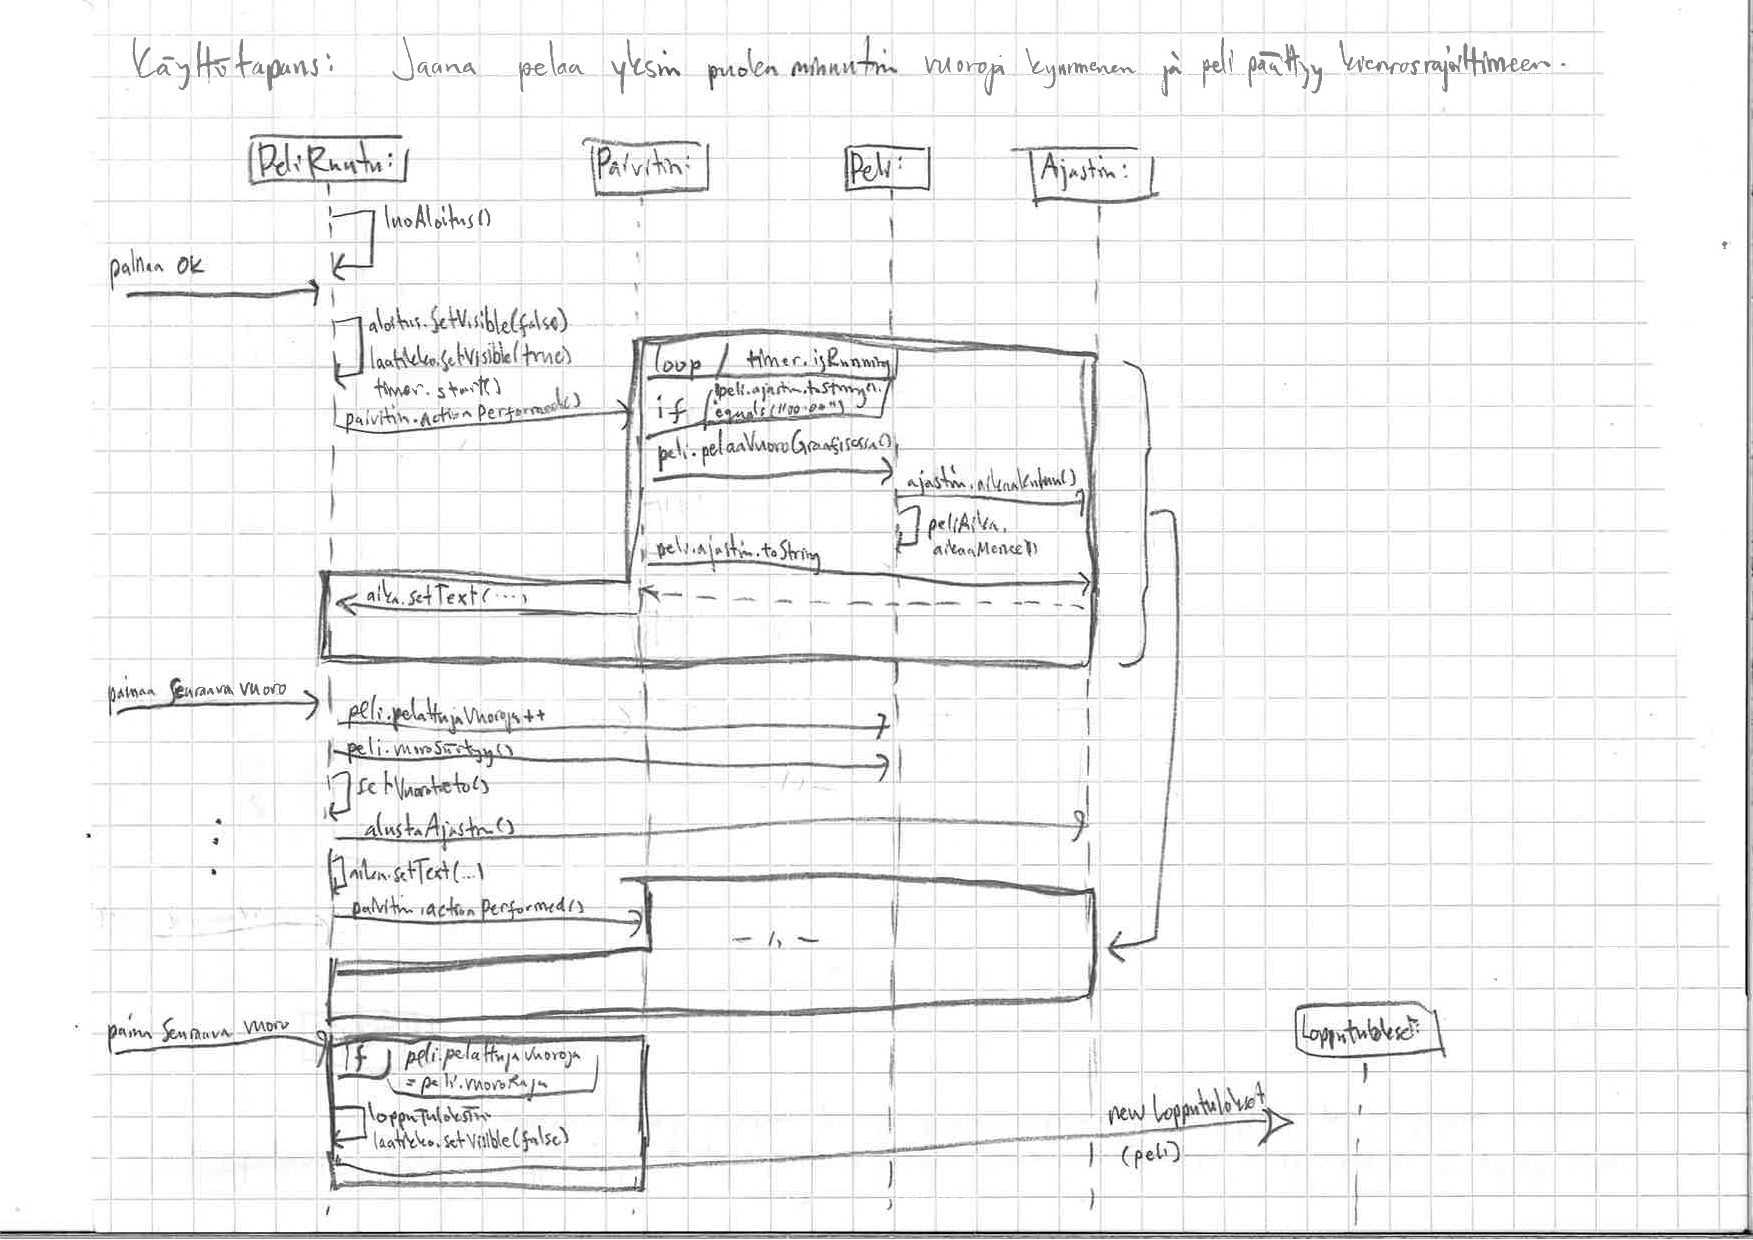 Käyttötapaus: Jaana pelaa yksin puolen minuutin vuoroja kymmenen ja peli päättyy
PeliRuutu:
Päivitin:
Peli:
Ajastin:
luoAloitus()
painaa OK
aloitus.setVisible(false)
laatikko.setVisible(true)
timer.start()
paivitin.actionPerformed()
loop / timer.isRunning
if peli.ajastin.toString().
equals("00:00")
peli.pelaaVuoroGraafisessa()
ajastin.aikaaKuluu()
peliAika.
aikaaMenee()
peli.ajastin.toString
aika.setText(...)
painaa Seuraava vuoro
peli.pelattujaVuoroja++
peli.vuoroSiirtyy()
setVuorotieto()
alustaAjastin()
aika.setText(...)
paivitin.actionPerformed()
- 11 -
paina Seuraava vuoro
if peli.pelattujaVuoroja
= peli.vuoroRaja
Lopputulokset:
laatikko.setVisible(false)
new Lopputulokset
(peli)